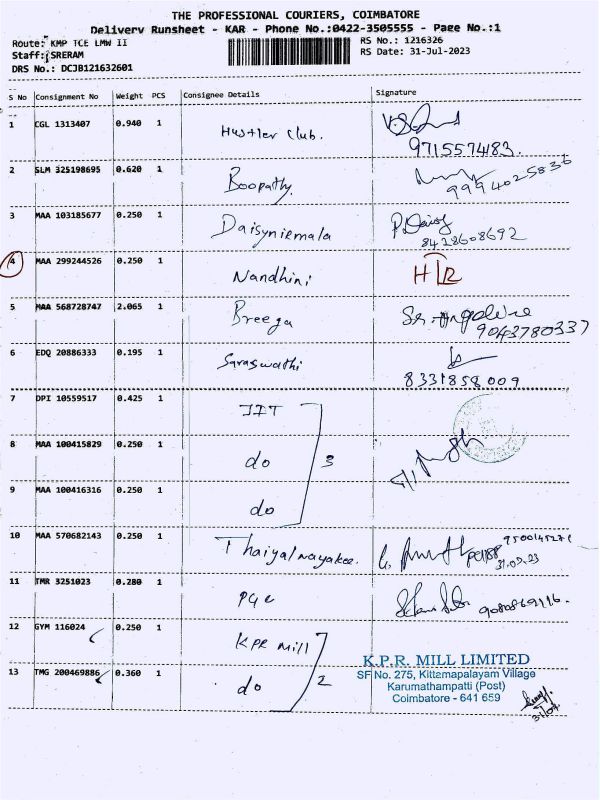 THE PROFESSIONAL COURIERS, COIMBATORE
Delivery Runsheet - KAR - Phone No.:0422-3505555 - Page No.:1
Route: KMP TCE LMW II RS No.: 1216326
Staff: SRERAM RS Date: 31-Jul-2023
DRS No.: DCJB121632601
S No Consignment No Weight PCS Consignee Details Signature
1 CGL 1313407 0.940 1 Hustler club.
9715557483.
2 SLM 325198695 0.620 1 Boopathy.
9994025836
3 MAA 103185677 0.250 1 Daisyniemala P.Daisy
8428608692
4 MAA 299244526 0.250 1 Nandhini
5 MAA 568728747 2.065 1 Breega
9043780337
6 EDQ 20886333 0.195 1 Saraswathi
8331858009
7 DPI 10559517 0.425 1 JIT
8 MAA 100415829 0.250 1 do 3
9 MAA 100416316 0.250 1 do
10 MAA 570682143 0.250 1 Thaiyalnayakee.
11 TMR 3251023 0.280 1
12 GYM 116024 0.250 1 KPR mill
13 TMG 200469886 0.360 1 do 2
K.P.R. MILL LIMITED
SF No. 275, Kittampalayam Village
Karumathampatti (Post)
Coimbatore - 641 659